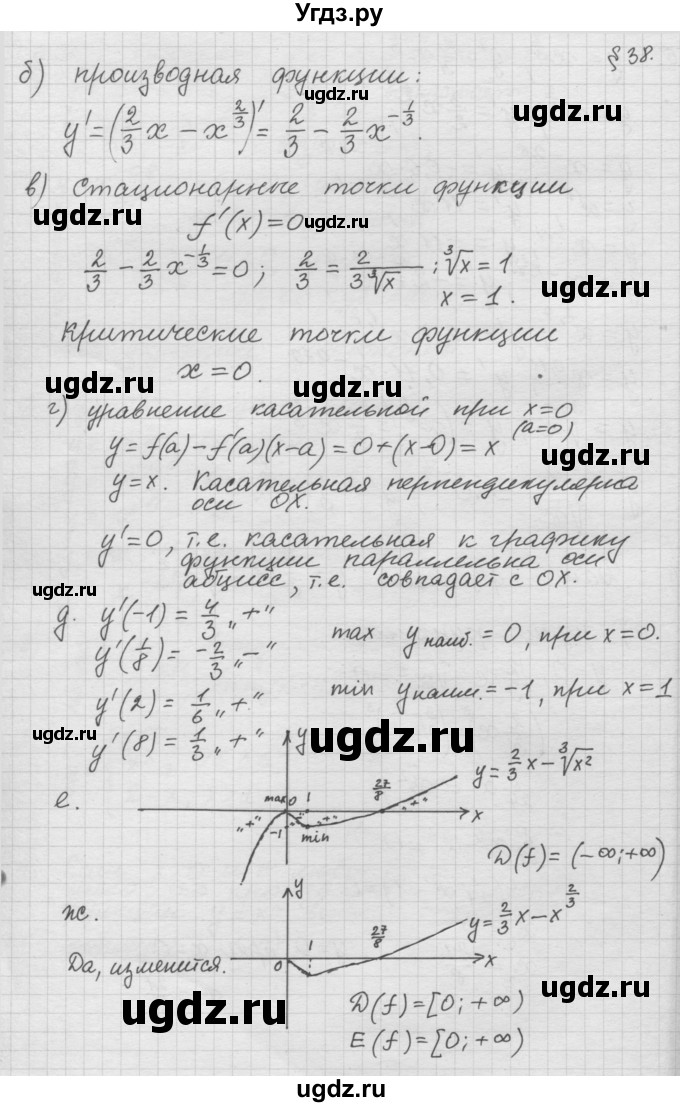 Угдз.ру
§ 38.
б) производная функции:
ugdz.ru
ugdz.ru
y' = (2/3 x − x^(2/3))' = 2/3 − 2/3 x^(−1/3).
в) стационарные точки функции
ugdz.ru
f'(x) = 0
ugdz.ru
2/3 − 2/3 x^(−1/3) = 0; 2/3 = 2/(3∛x); ∛x = 1
ugdz.ru
x = 1.
критические точки функции
x = 0.
ugdz.ru
ugdz.ru
г) уравнение касательной при x=0
(a=0)
y = f(a) − f'(a)(x−a) = 0 + (x−0) = x
ugdz.ru
y = x. Касательная перпендикулярна
оси OX.
ugdz.ru
y' = 0, т.е. касательная к графику
функции параллельна оси
абцисс, т.е. совпадает с OX.
ugdz.ru
ugdz.ru
д. y'(−1) = 4/3 „+“ max y наиб. = 0, при x=0.
y'(1/8) = −2/3 „−“
ugdz.ru
y'(2) = 1/6 „+“ min y наим. = −1, при x=1
ugdz.ru
y'(8) = 1/3 „+“
ugdz.ru
y
y = 2/3 x − ∛x²
е.
max 0 1 27/8
„+“ „-“ „+“ „+“ x
−1 min
ugdz.ru
D(f) = (−∞; +∞)
y
ж.
y = 2/3 x − x^(2/3)
1 27/8
Да, изменится.
0 x
ugdz.ru
ugdz.ru
D(f) = [0; +∞)
E(f) = [0; +∞)
ugdz.ru